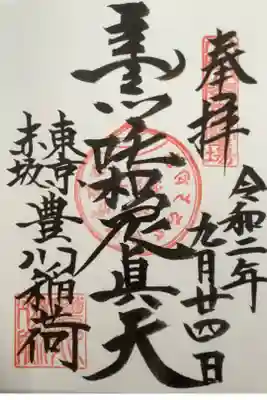 奉拝
令和二年
九月廿四日
豊川吒枳尼眞天
東京
赤坂
豊川稲荷